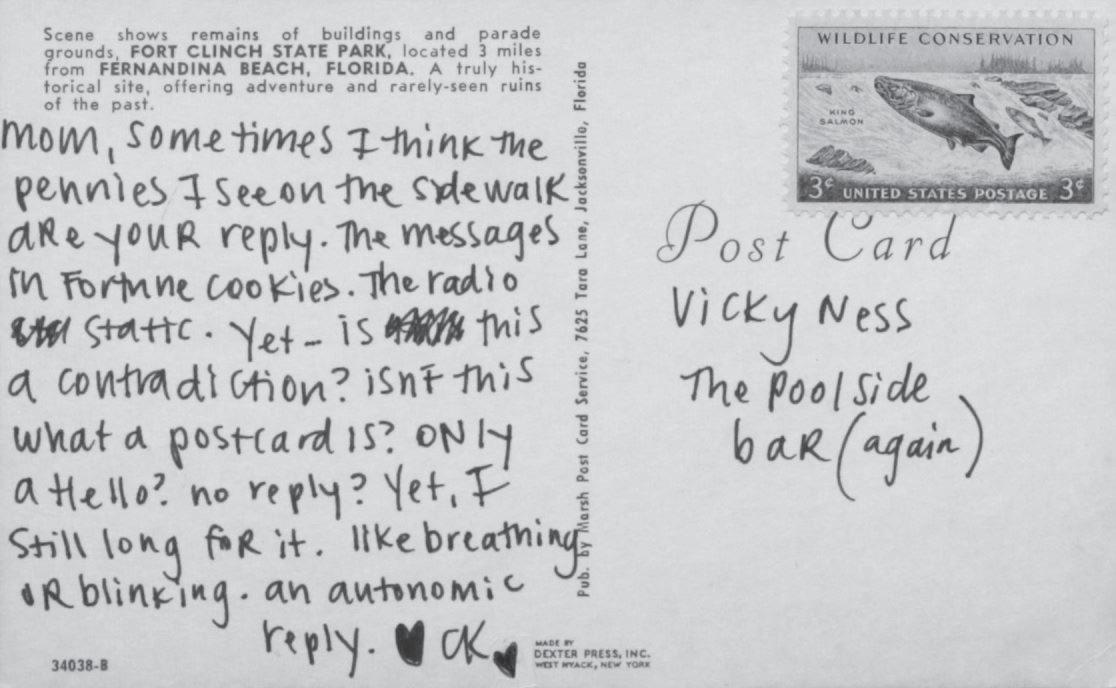 Scene shows remains of buildings and parade
grounds, FORT CLINCH STATE PARK, located 3 miles
from FERNANDINA BEACH, FLORIDA. A truly his-
torical site, offering adventure and rarely-seen ruins
of the past.
Mom, sometimes I think the
pennies I see on the sidewalk
are your reply. The messages
in Fortune cookies. The radio
static. Yet - is this
a contradiction? isn't this
what a postcard is? ONly
a Hello? no reply? Yet, I
still long for it. like breathing
or blinking. an autonomic
reply. ♥ CK ♥
34038-B
MADE BY
DEXTER PRESS, INC.
WEST NYACK, NEW YORK
Pub. by Marsh Post Card Service, 7625 Tara Lane, Jacksonville, Florida
WILDLIFE CONSERVATION
KING
SALMON
3¢ UNITED STATES POSTAGE 3¢
Post Card
Vicky Ness
The Poolside
bar (again)